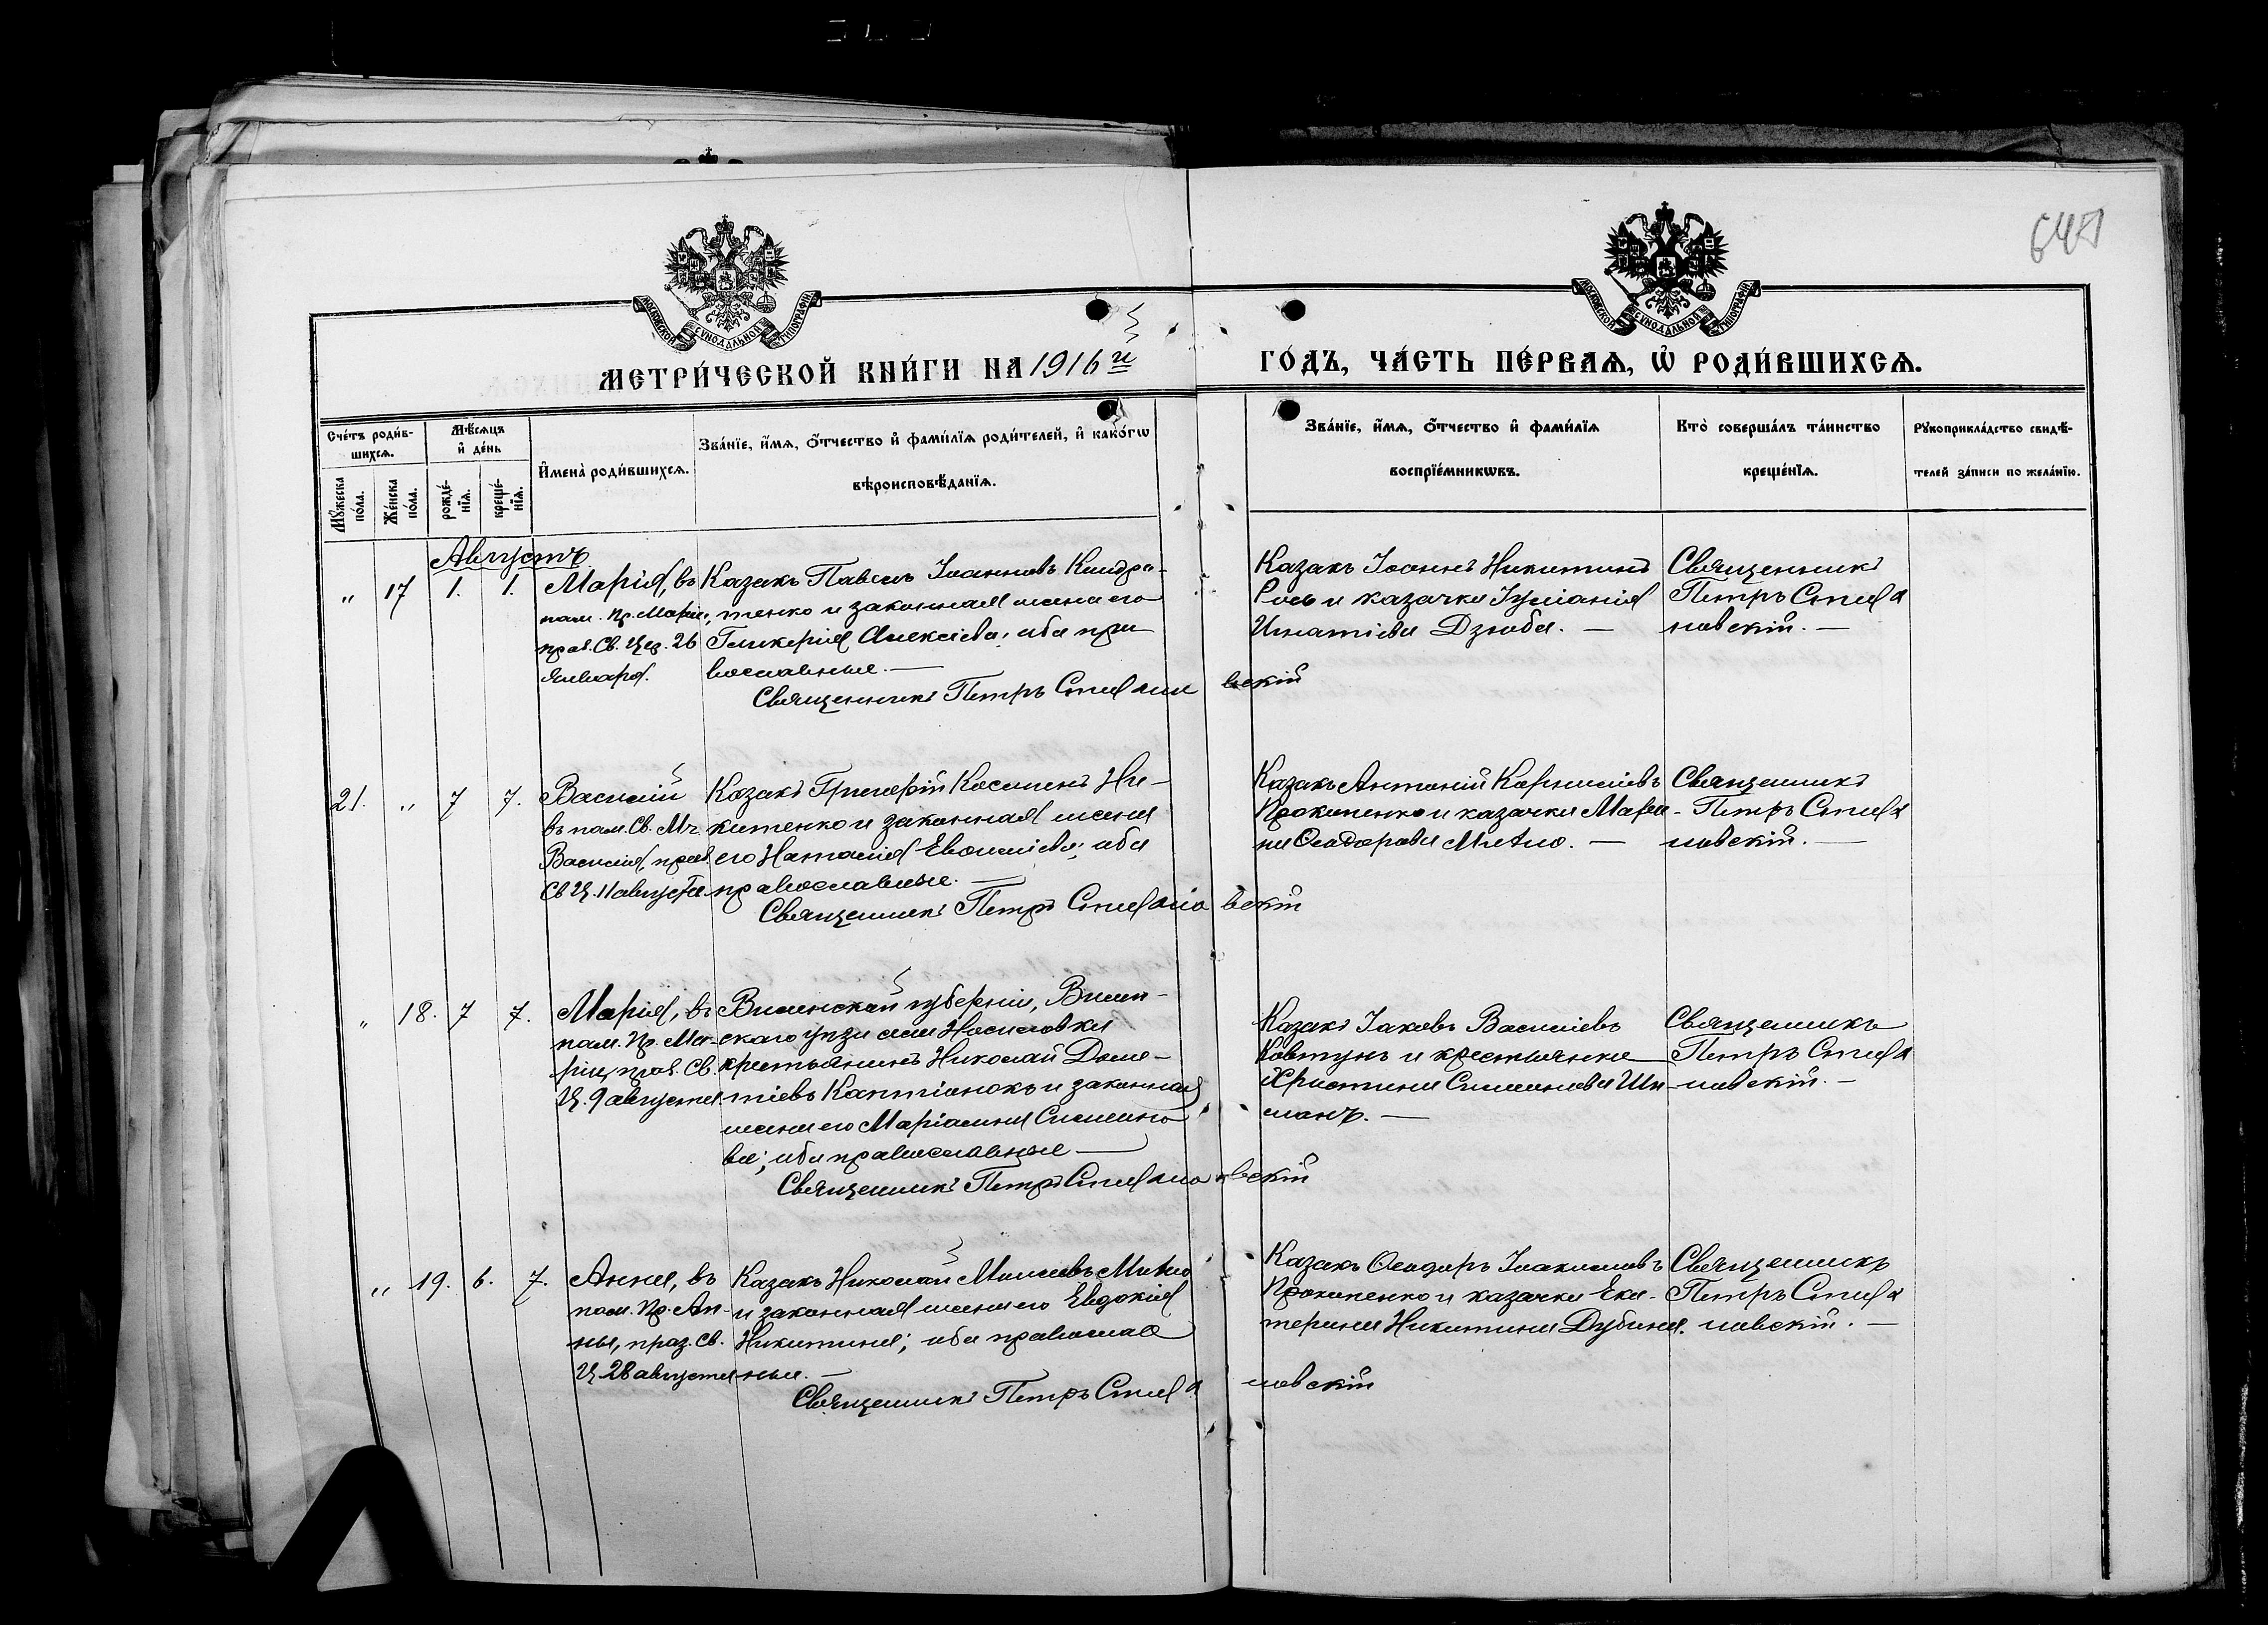 647
МОСКОВСКОЙ СѴНОДАЛЬНОЙ ТИПОГРАФІИ
МОСКОВСКОЙ СѴНОДАЛЬНОЙ ТИПОГРАФІИ
МЕТРИ́ЧЕСКОЙ КНИ́ГИ НА 1916й
ГО́ДЪ, ЧА́СТЬ ПЕ́РВАѦ, Ѡ҆ РОДИ́ВШИХСѦ.
Сче́тъ роди́в-
шихсѧ.
Мꙋ́жеска по́ла.
Же́нска по́ла.
Мѣ́сѧцъ и҆ де́нь
рожде́-
нїѧ.
креще́-
нїѧ.
И҆мена̀ роди́вшихсѧ.
Зва́нїе, и҆́мѧ, ѻ҆́тчество и҆ фами́лїѧ роди́телей, и҆ како́гѡ
вѣроисповѣ́данїѧ.
Зва́нїе, и҆́мѧ, ѻ҆́тчество и҆ фами́лїѧ
воспрїе́мникѡвъ.
Кто̀ соверша́лъ та́инство
креще́нїѧ.
Рꙋкоприкла́дство свидѣ́-
телей за́писи по жела́нїю.
Августъ
„ 17 1. 1.
Марія, въ
пам. Пр. Маріи,
праз. Св. Цер. 26
января.
Казакъ Павелъ Іоанновъ Кондра-
тенко и законная жена его
Гликерія Алексіева; оба пра
вославные. —
Священникъ Петръ Стефановскій
Казакъ Іоаннъ Никитинъ
Рось и казачка Іуліанія
Игнатіева Дзюба. —
Священникъ
Петръ Стефа
новскій. —
21. „ 7 7.
Василій
въ пам. Св. Мч.
Василія, праз.
Св Ц. 11 августа
Казакъ Григорій Косминъ Ни-
китенко и законная жена
его Наталія Евфиміева; оба
православные. —
Священникъ Петръ Стефановскій
Казакъ Антоній Корниліевъ
Прокопенко и казачка Мари-
на Ѳеодорова Митло. —
Священникъ
Петръ Стефа
новскій. —
„ 18. 7 7.
Марія, въ
пам. Пр. Ма-
ріи, праз. Св.
Ц. 9 августа
Виленской губерніи, Вилен-
скаго уѣзда
крестьянинъ Николай Доме-
тіевъ Каптіонокъ и законная
жена его Маріанна Симеоно
ва; оба православные —
Священникъ Петръ Стефановскій
Казакъ Іаковъ Василіевъ
Ковтунъ и крестьянка
Христина Симеонова Ши-
манъ. —
Священникъ
Петръ Стефа
новскій. —
„ 19. 6. 7.
Анна, въ
пам. Пр. Ан-
ны, праз. Св.
Ц 28 августа
Казакъ Николай Моисеевъ Митло
и законная жена его Евдокія
Никитина; оба православ
ные. —
Священникъ Петръ Стефановскій
Казакъ Ѳеодоръ Іоакимовъ
Прокопенко и казачка Ека-
терина Никитина Дубина.
Священникъ
Петръ Стефа
новскій. —